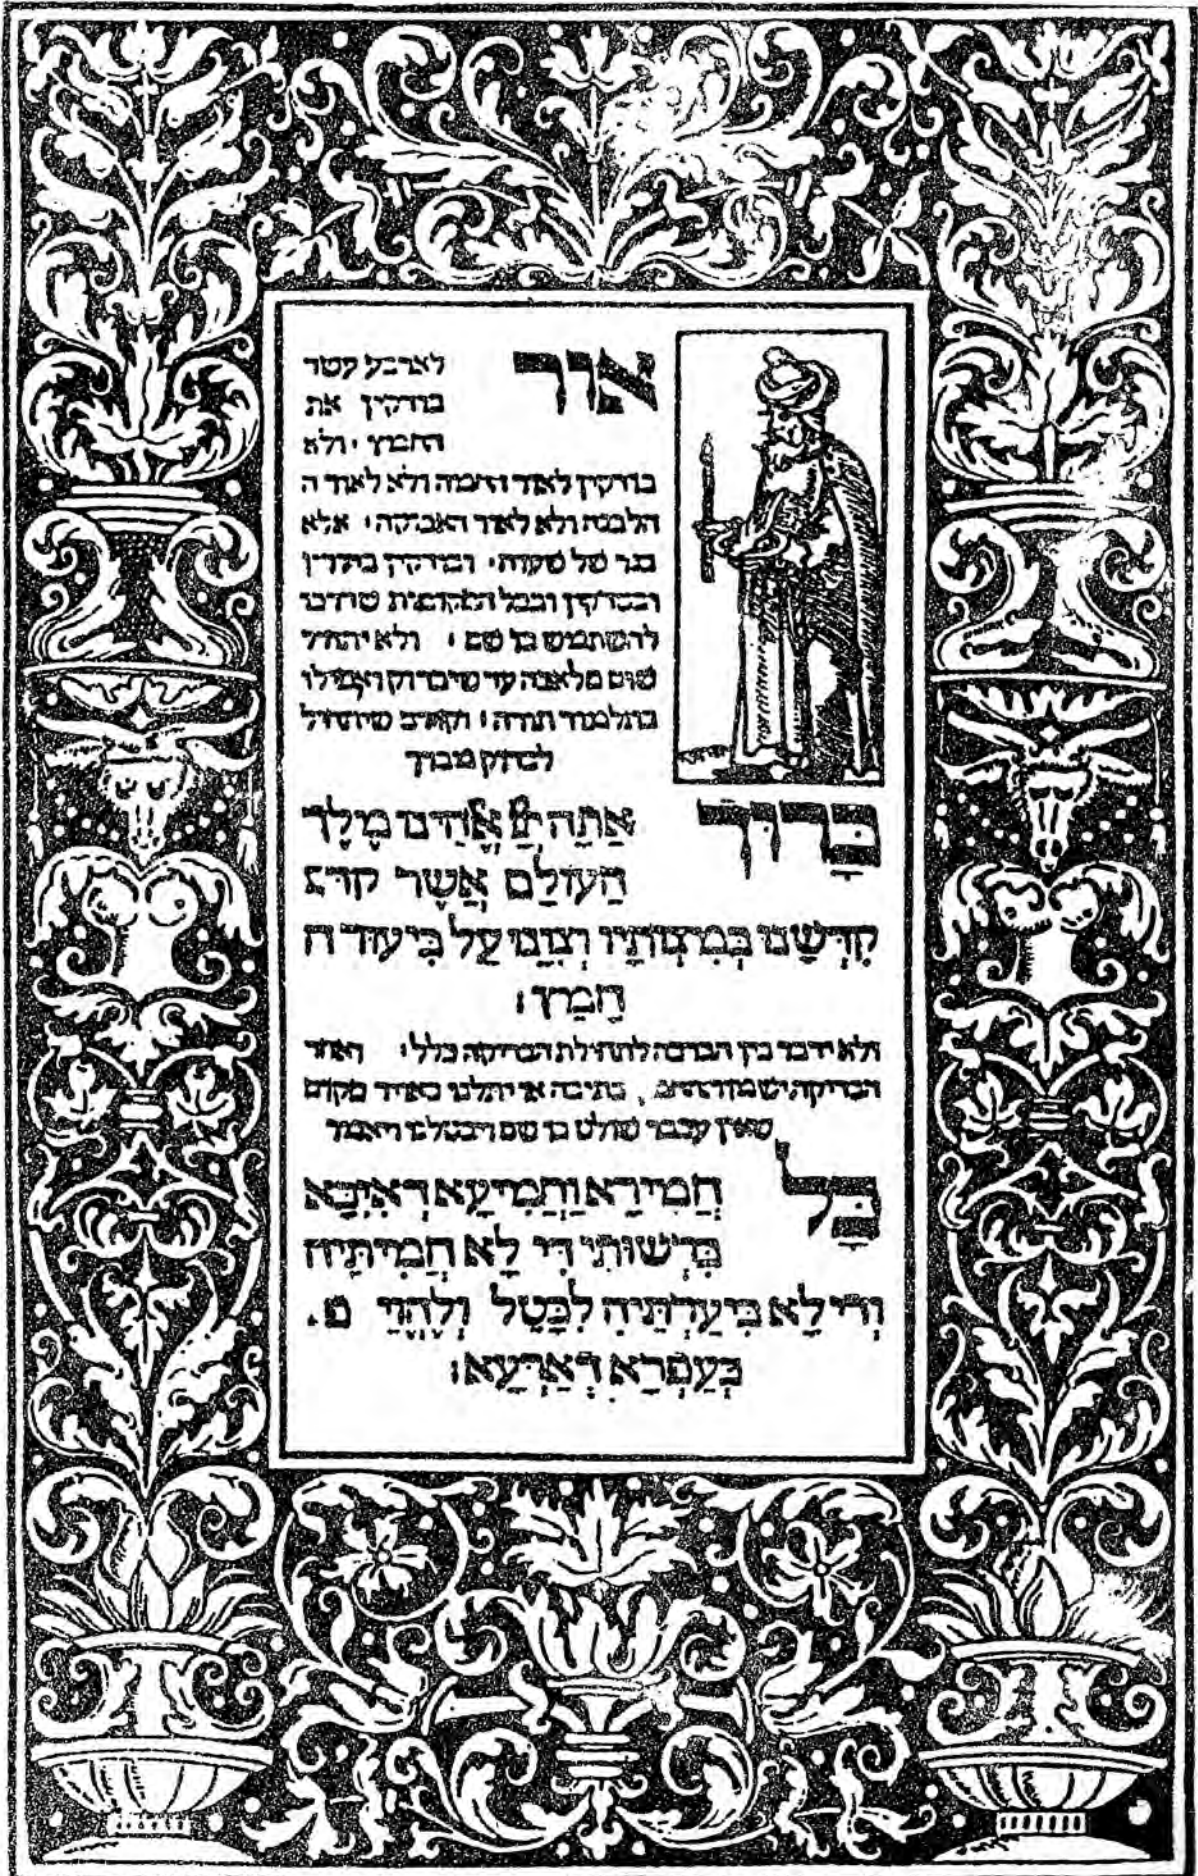 אור לארבע עשר
בודקין את
החמץ · ולא
בודקין לאור החמה ולא לאור ה
הלבנה ולא לאור האבוקה · אלא
בנר של שעוה · ובודקין בחורין
ובסדקין ובכל המקומות שדרכו
להשתמש בו שם · ולא יתחיל
שום מלאכה עד שיבדוק ואפילו
בתלמוד תורה · וקודם שיתחיל
לבדוק מברך
בָּרוּךְ אַתָּה יְיָ אֱלֹהֵינוּ מֶלֶךְ
הָעוֹלָם אֲשֶׁר קדש
קִדְּשָׁנוּ בְּמִצְוֹתָיו וְצִוָּנוּ עַל בִּיעוּר ח
חָמֵץ:
ולא ידבר בין הברכה לתחילת הבדיקה כלל · ואחר
הבדיקה ישמור החמץ בתיבה או יתלנו באויר מקום
שאין עכבר שולט בו שם ויבטלנו ויאמר
כָּל חֲמִירָא וַחֲמִיעָא דְאִיכָּא
בִּרְשׁוּתִי דִּי לָא חֲמִיתֵּיהּ
וְדִי לָא בִיעַרְתֵּיהּ לִבָּטֵל וְלֶהֱוֵי
כְּעַפְרָא דְאַרְעָא: